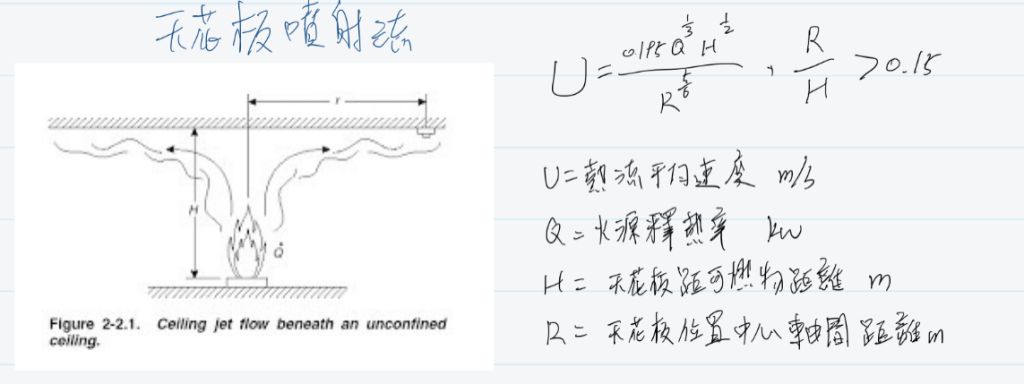 天花板噴射流
r
H
Q̇
Figure 2-2.1. Ceiling jet flow beneath an unconfined
ceiling.
U = 0.195 Q^(1/3) H^(1/2) / R^(5/6) , R/H > 0.15
U = 熱流平均速度 m/s
Q = 火源釋熱率 kw
H = 天花板距可燃物距離 m
R = 天花板位置中心軸間距離 m